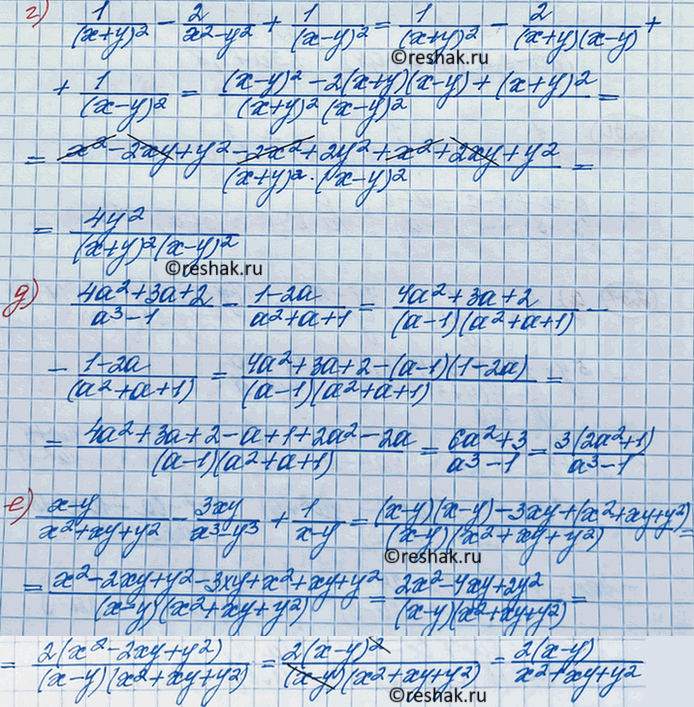 г) 1/(x+y)² - 2/x²-y² + 1/(x-y)² = 1/(x+y)² - 2/(x+y)(x-y) +
+ 1/(x-y)² = (x-y)² - 2(x+y)(x-y) + (x+y)²/(x+y)² (x-y)² =
= x² - 2xy + y² - 2x² + 2y² + x² + 2xy + y²/(x+y)² · (x-y)² =
= 4y²/(x+y)² (x-y)²
©reshak.ru
д) 4a²+3a+2/a³-1 - 1-2a/a²+a+1 = 4a²+3a+2/(a-1)(a²+a+1) -
- 1-2a/(a²+a+1) = 4a²+3a+2-(a-1)(1-2a)/(a-1)(a²+a+1) =
= 4a²+3a+2-a+1+2a²-2a/(a-1)(a²+a+1) = 6a²+3/a³-1 = 3(2a²+1)/a³-1
©reshak.ru
е) x-y/x²+xy+y² - 3xy/x³-y³ + 1/x-y = (x-y)(x-y)-3xy+(x²+xy+y²)/(x-y)(x²+xy+y²) =
©reshak.ru
= x²-2xy+y²-3xy+x²+xy+y²/(x-y)(x²+xy+y²) = 2x²-4xy+2y²/(x-y)(x²+xy+y²) =
= 2(x²-2xy+y²)/(x-y)(x²+xy+y²) = 2(x-y)²/(x-y)(x²+xy+y²) = 2(x-y)/x²+xy+y²
©reshak.ru